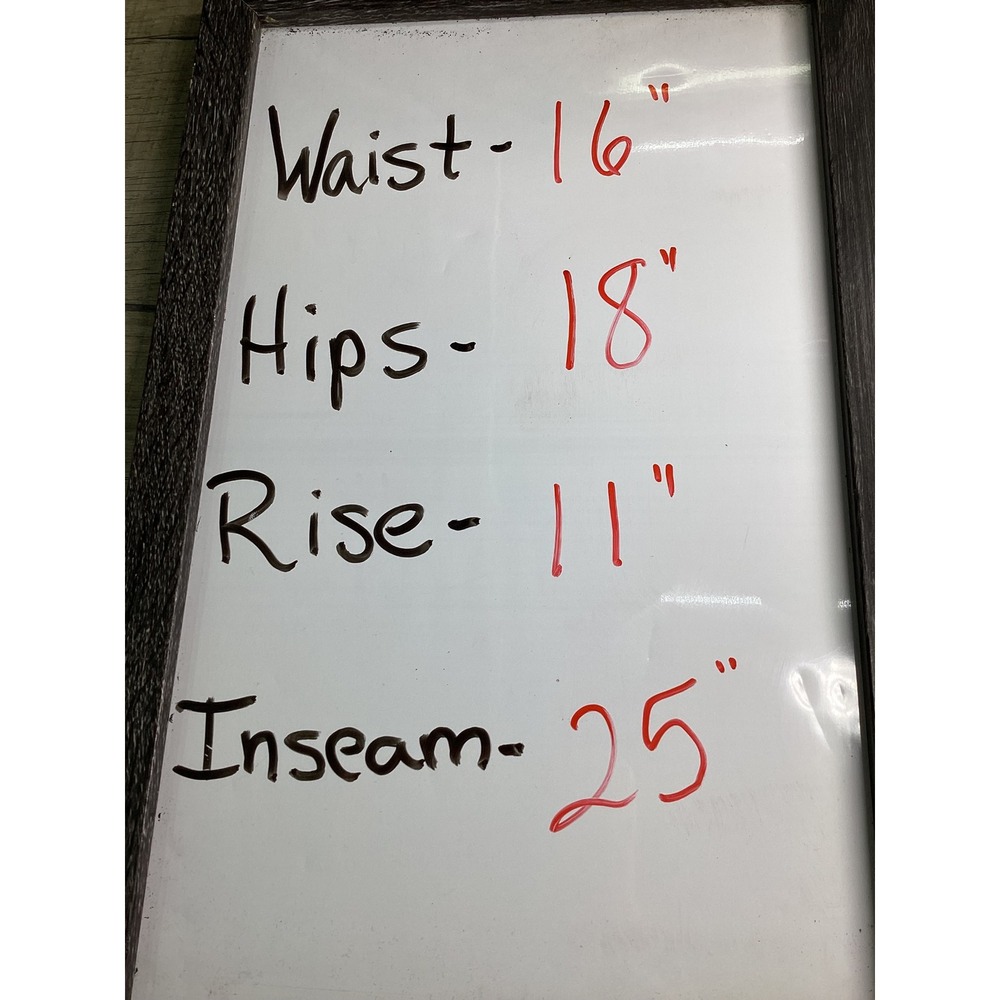 Waist- 16"
Hips- 18"
Rise- 11"
Inseam- 25"